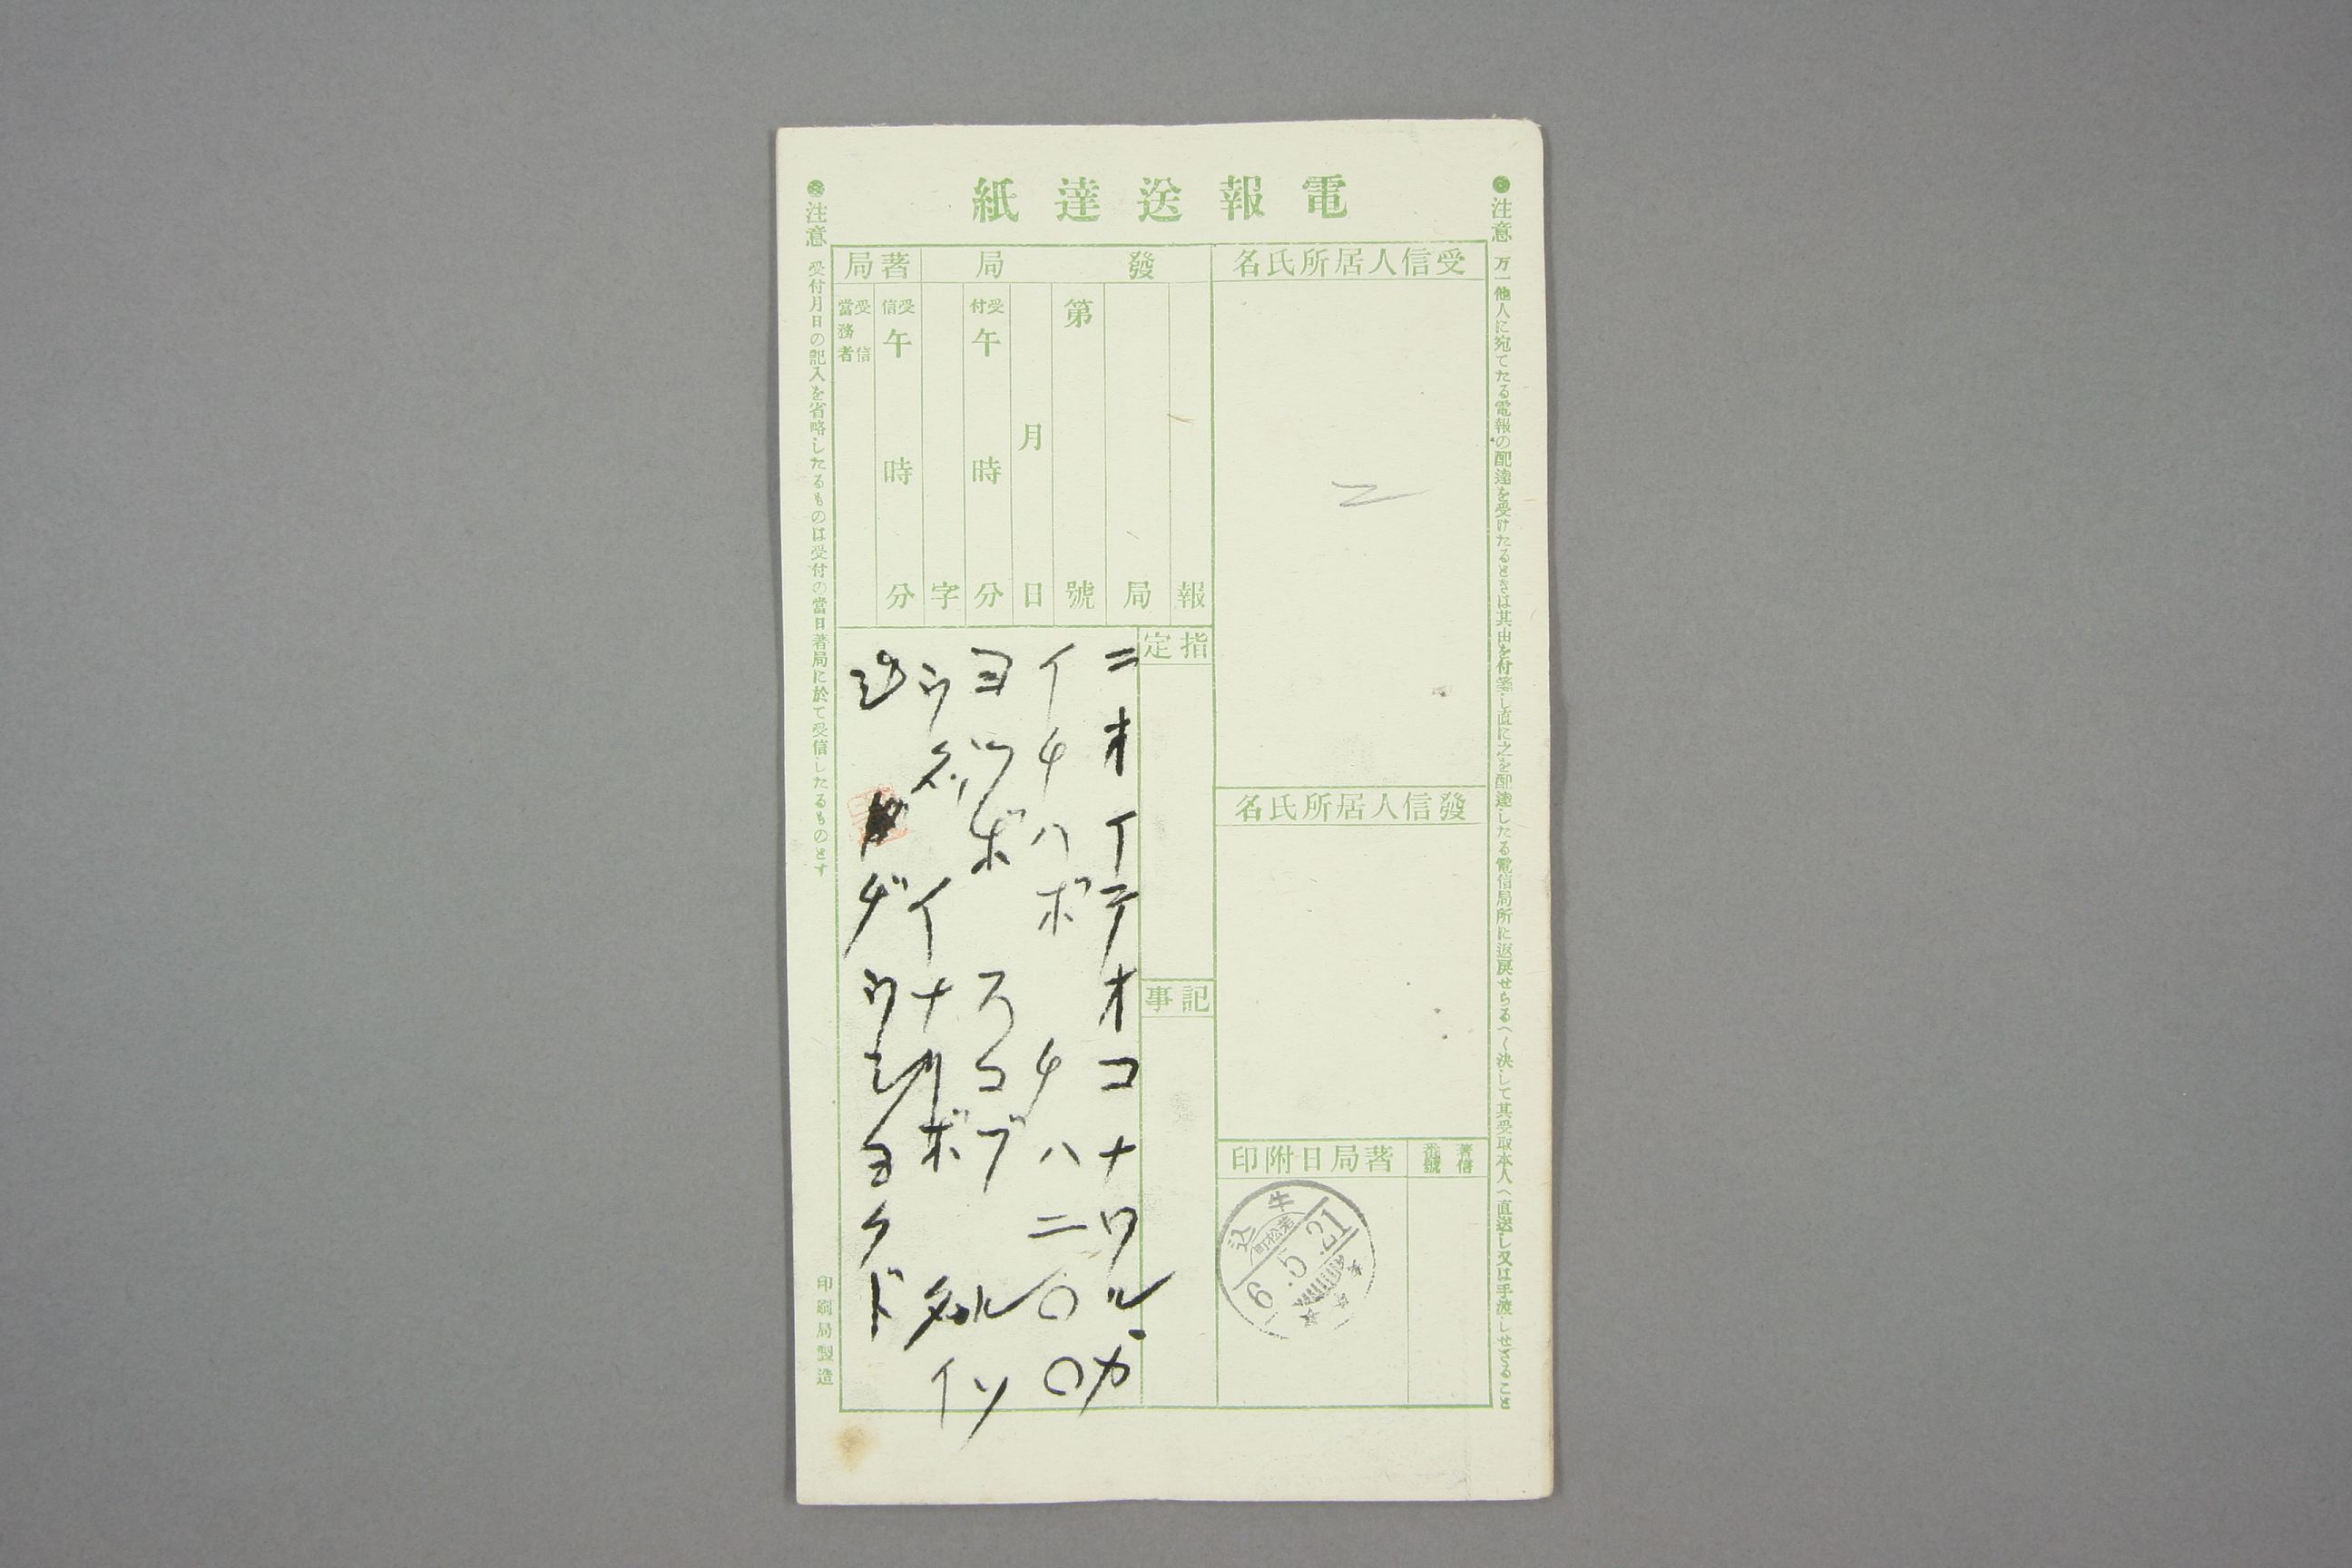 電報送達紙
●注意 万一他人に宛てたる電報の配達を受けたるときは其由を付箋し直に之を配達したる電信局所に返戻せらるへく決して其受取本人へ直送し又は手渡しせさること
受信人居所氏名
發信人居所氏名
著信番號
著局日附印
牛込
若松町
6.5.21
發局
報
局
第 號
月 日
受付 午 時 分
字
著局
受信 午 時 分
受信當務者
指定
記事
ニオイテオコナワルカ
イチハボ チハニ〇〇
ヨツボ スコブル
イナリボ タイ
ヂウシヨケド
●注意 受付月日の記入を省略したるものは受付の當日著局に於て受信したるものとす
印刷局製造